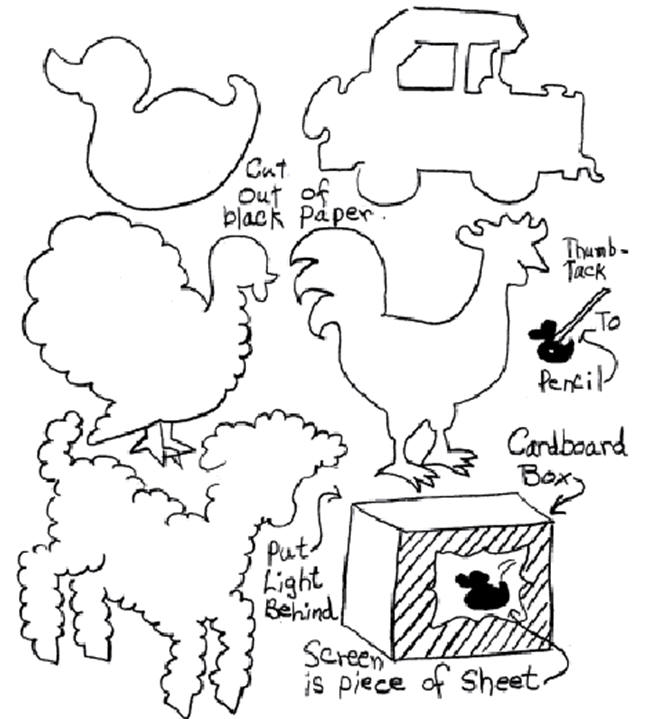 Cut
out of
black Paper.
Thumb-
Tack
To
Pencil
Cardboard
Box
Put
Light
Behind
Screen
is piece of Sheet